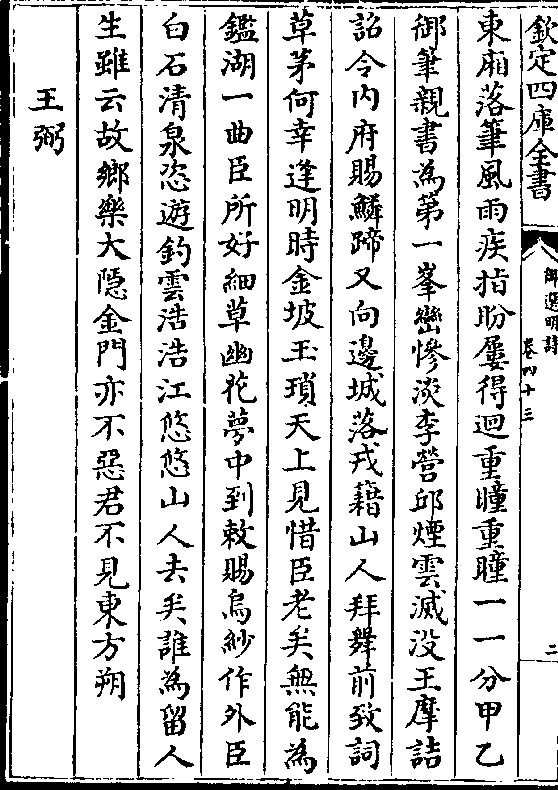 欽定四庫全書
御選明詩
卷四十三
二
東廂落筆風雨疾指盼屢得迴重瞳重瞳一一分甲乙
御筆親書為第一峯巒慘淡李營邱煙雲滅没王摩詰
詔令内府賜鱗蹄又向邉城落戎籍山人拜舞前致詞
草茅何幸逢明時金坡玉瑣天上見惜臣老矣無能為
鑑湖一曲臣所好細草幽花夢中到敕賜烏紗作外臣
白石清泉恣遊釣雲浩浩江悠悠山人去矣誰為留人
生雖云故鄉樂大隠金門亦不惡君不見東方朔
王弼